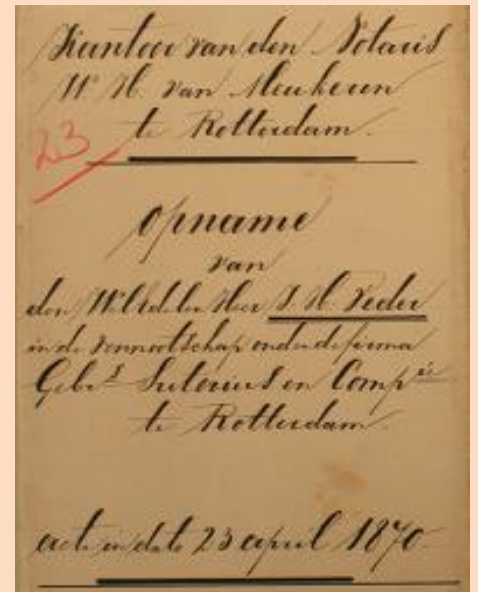 Kantoor van den Notaris
W. H. van
te Rotterdam.
23
Opname
van
den WelEdelen Heer J. H.
in de Vennootschap onder de firma
Gebrs Sutorius en Compie
te Rotterdam.
acte in dato 23 april 1870.